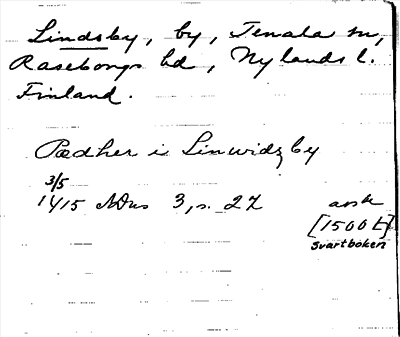 Lindsby, by, Tenala sn,
Raseborgs hd, Nylands l.
Finland.
Pædher i Linwidzby
3/5
1415 ADus 3, s. 27 avsk
[1500 t]
Svartboken